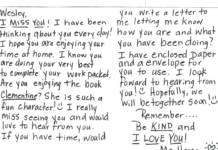 Wesley,
I MISS YOU! I have been
thinking about you every day!
I hope you are enjoying your
time at home. I know you
are doing your very best
to complete your work packet.
Are you enjoying the book
Clementine? She is such a
fun character! I really
miss seeing you and would
love to hear from you.
If you have time, would
you write a letter to
me letting me know
how you are and what
you have been doing?
I have enclosed paper
and a envelope for
you to use. I look
forward to hearing from
you! Hopefully, we
will be together soon
Remember....
Be KIND and
I LOVE YOU!